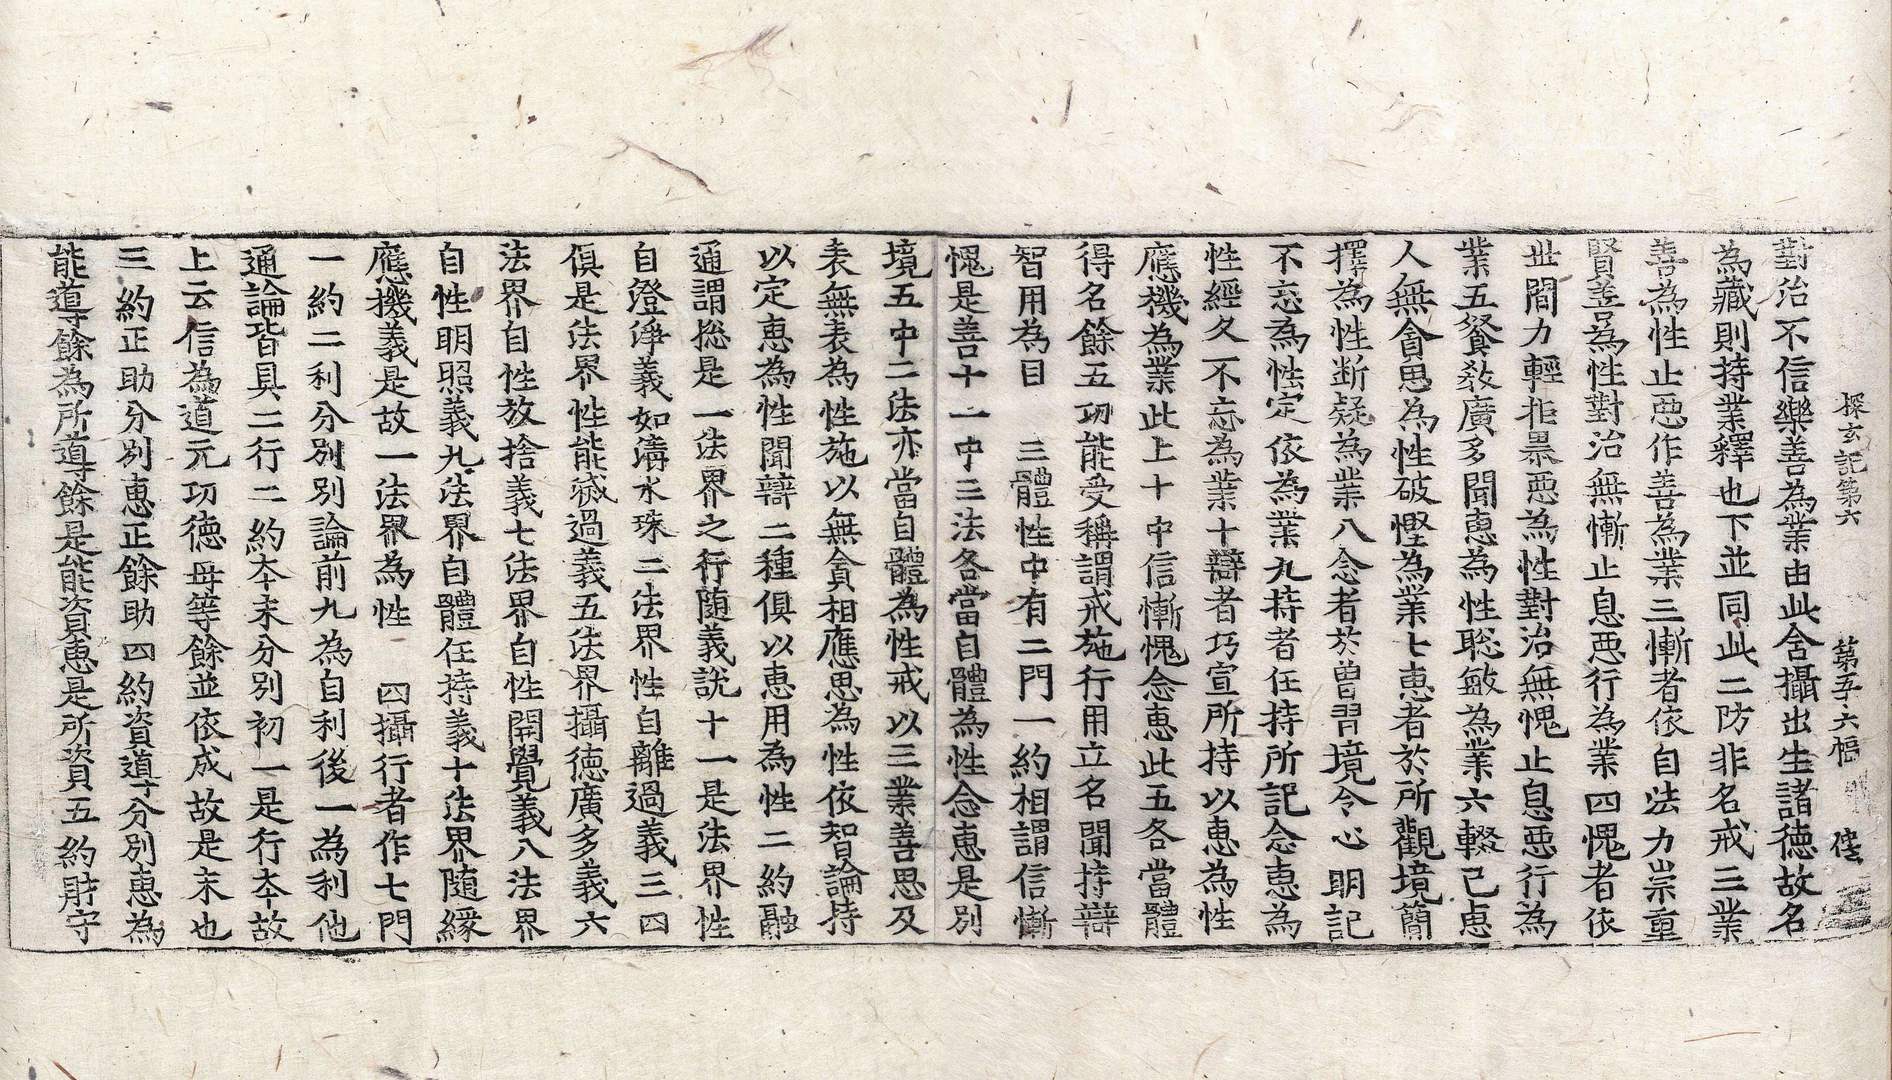 探玄記第六　第五六幅　傞
對治不信樂善為業由此含攝出生諸徳故名
為藏則持業釋也下並同此二防非名戒三業
善為性止惡作善為業三慚者依自法力崇重
賢善為性對治無慚止息惡行為業四愧者依
世間力輕拒暴惡為性對治無愧止息惡行為
業五餐敎廣多聞恵為性聡敏為業六輟己恵
人無貪思為性破慳為業七恵者於所觀境簡
擇為性断疑為業八念者於曽習境令心明記
不忘為性定依為業九持者任持所記念恵為
性經久不忘為業十辯者巧宣所持以恵為性
應機為業此上十中信慚愧念恵此五各當體
得名餘五功能受稱謂戒施行用立名聞持辯
智用為目　三體性中有二門一約相謂信慚
愧是善十一中三法各當自體為性念恵是別
境五中二法亦當自體為性戒以三業善思及
表無表為性施以無貪相應思為性依智論持
以定恵為性聞辯二種俱以恵用為性二約融
通謂揔是一法界之行随義說十一是法界性
自澄淨義如淸水珠二法界性自離過義三四
俱是法界性能滅過義五法界攝徳廣多義六
法界自性放捨義七法界自性開覺義八法界
自性明照義九法界自體任持義十法界随縁
應機義是故一法界為性　四攝行者作七門
一約二利分別別論前九為自利後一為利他
通論皆具二行二約夲末分別初一是行夲故
上云信為道元功徳母等餘並依成故是末也
三約正助分別恵正餘助四約資導分別恵為
能導餘為所導餘是能資恵是所資五約財守